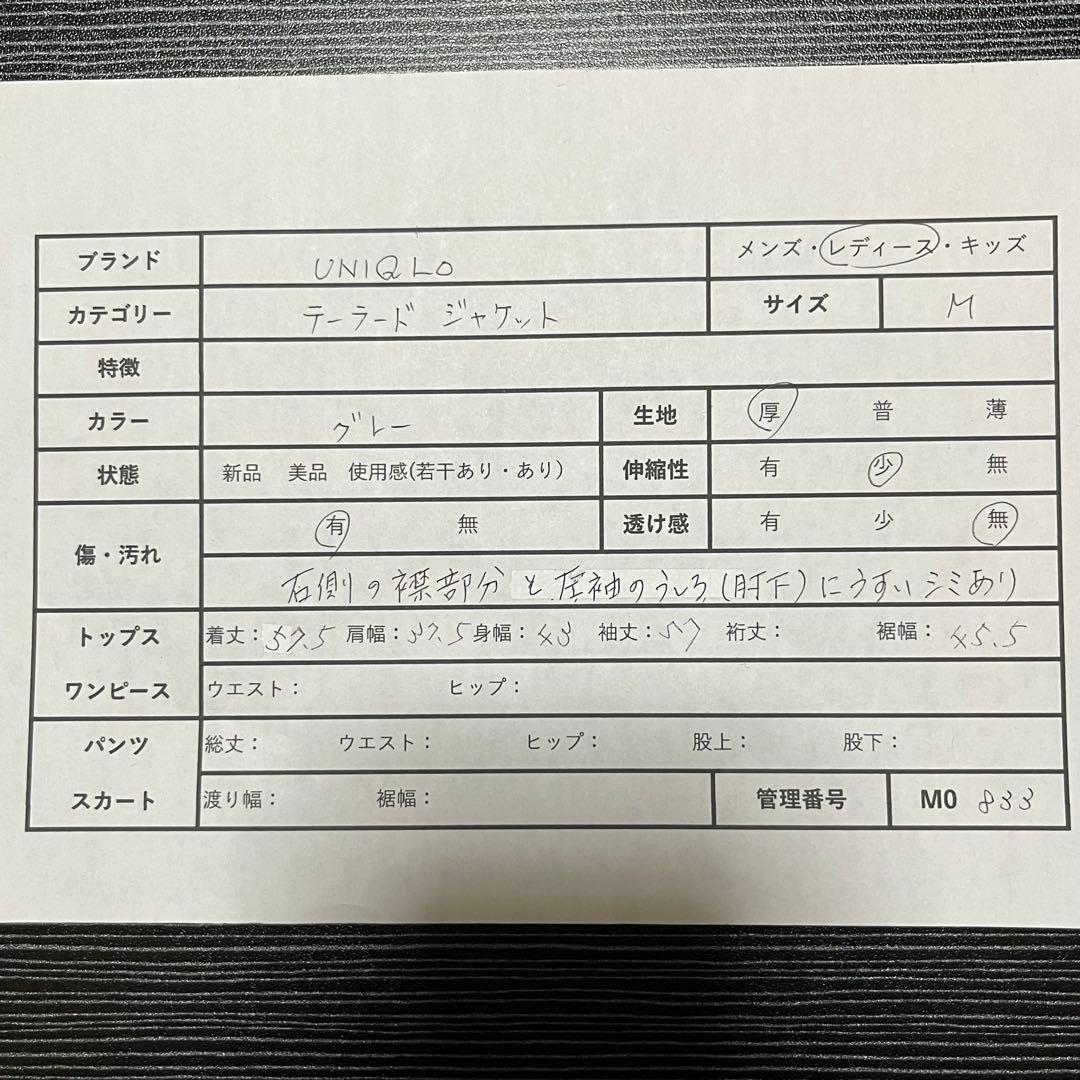 ブランド UNIQLO メンズ・レディース・キッズ
カテゴリー テーラード ジャケット サイズ M
特徴
カラー グレー 生地 厚 普 薄
状態 新品 美品 使用感(若干あり・あり) 伸縮性 有 少 無
傷・汚れ 有 無 透け感 有 少 無
右側の襟部分と 袖のうしろ(肘下)にうすいシミあり
トップス 着丈: 57.5 肩幅: 37.5 身幅: 43 袖丈: 57 裄丈: 裾幅: 45.5
ワンピース ウエスト: ヒップ:
パンツ 総丈: ウエスト: ヒップ: 股上: 股下:
スカート 渡り幅: 裾幅: 管理番号 M0 833